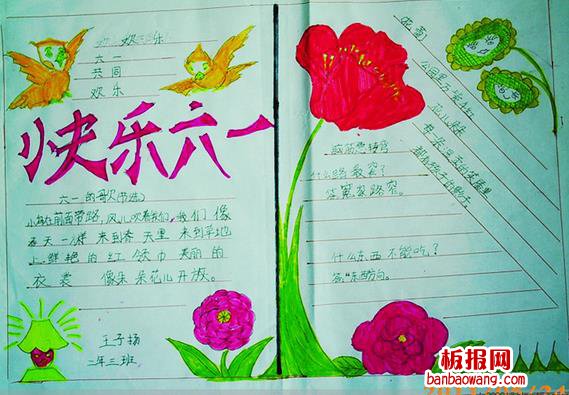 欢乐
六一
共同
欢乐
快乐六一
六一的歌(节选)
小鸟在前面带路,风儿吹着我们,我们像
春天一样 来到花 天里 来到草地
上.鲜艳的 红 领巾 美丽 的
衣裳 像朵朵花儿开放。
王子扬
二年三班
花蕾
公园里万紫千红
花儿朵朵
脑筋急转弯
什么路最窄?
答冤家路窄。
什么东西不能吃?
答“东西方向。
板报网
banbaowang.com